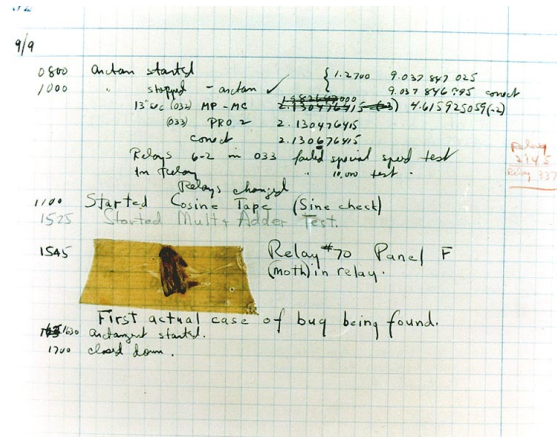 9/9
0800 arctan started { 1.2700 9.037 847 025
1000 " stopped - arctan ✓ 9.037 846 995 correct
13"uc (032) MP - MC 2.130476415 (-3) 4.615925059 (-2)
(033) PRO 2 2.130476415
correct 2.130676415
Relays 6-2 in 033 failed special speed test
In Relay " 10.000 test .
Relays changed
Relay
2145
Relay 337
1100 Started Cosine Tape (Sine check)
1525 Started Mult + Adder Test.
1545 Relay #70 Panel F
(moth) in relay.
First actual case of bug being found.
1630 arctangent started.
1700 closed down.